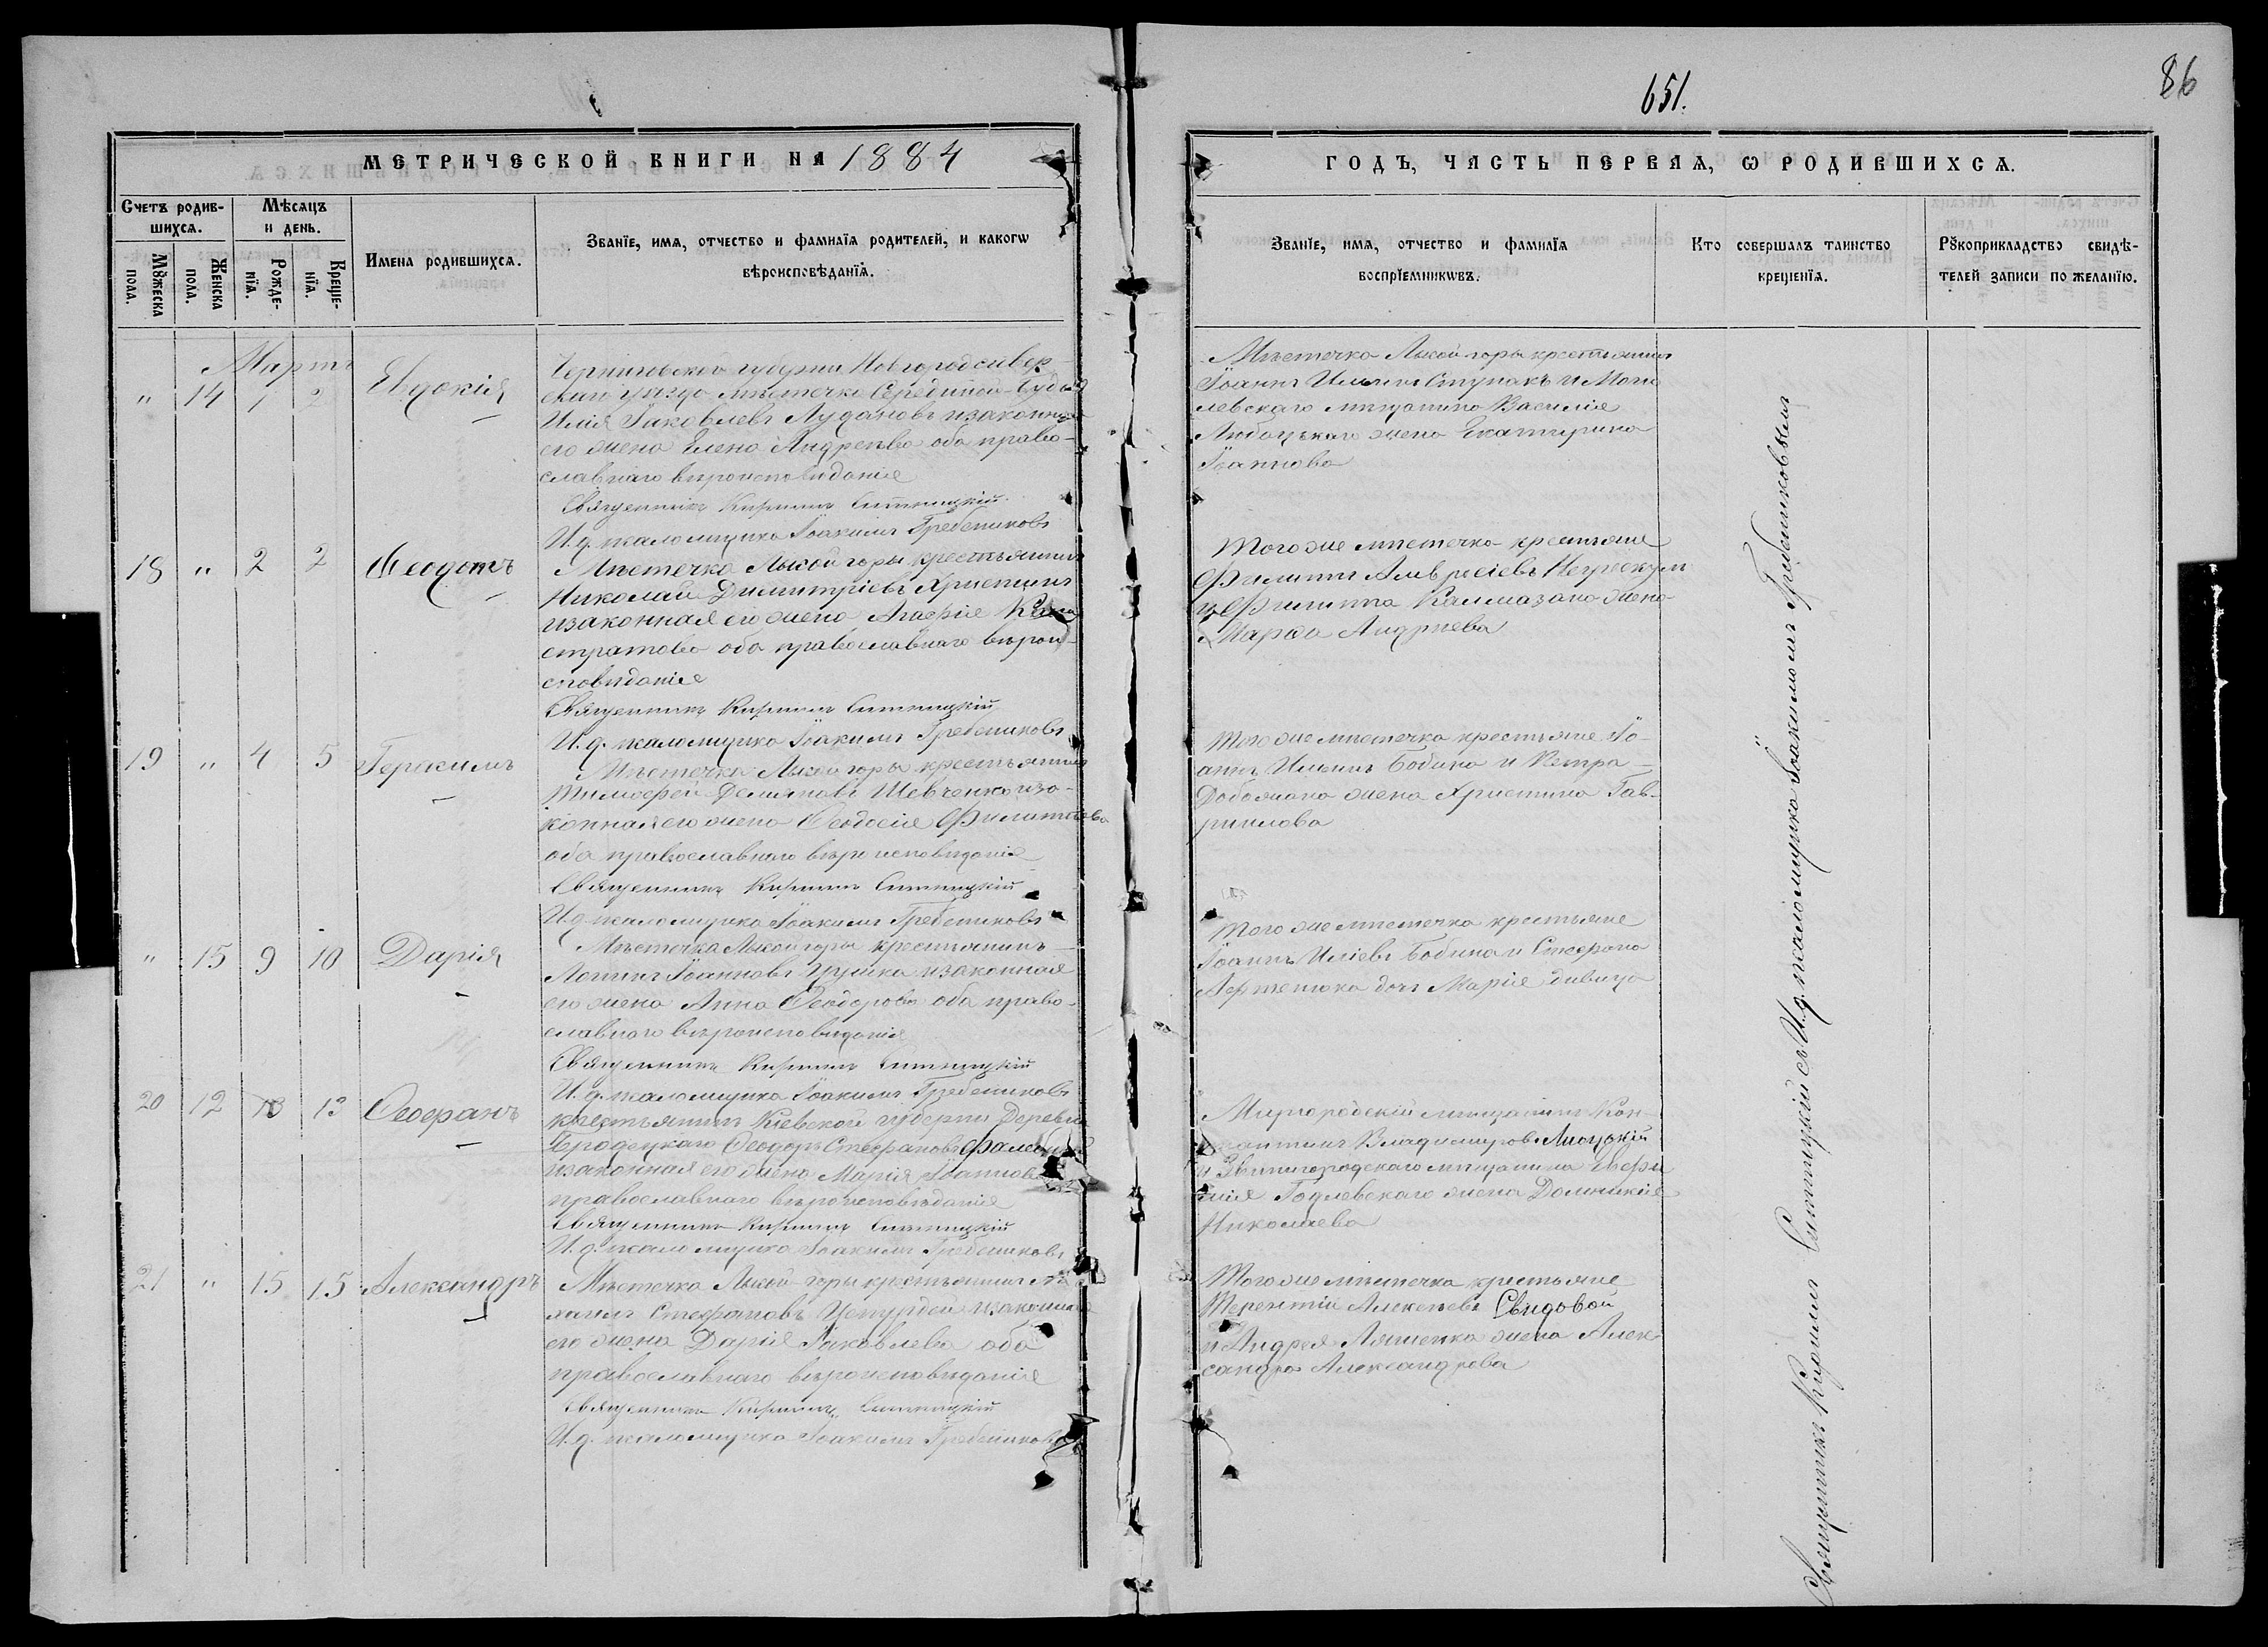 86
651.
МЕТРИЧЕСКОЙ КНИГИ НА 1884
ГОДЪ, ЧАСТЬ ПЕРВАЯ, Ѡ РОДИВШИХСѦ.
Счетъ родив-
шихсѧ.
Мѣсѧцъ
и день.
Мꙋжеска
пола.
Женска
пола.
Рожде-
нїѧ.
Креще-
нїѧ.
Имена родившихсѧ.
Званїе, имѧ, отчество и фамилїѧ родителей, и какогѡ
вѣроисповѣданїѧ.
Званїе, имѧ, отчество и фамилїѧ
воспрїемникѡвъ.
Кто совершалъ таинство
крещенїѧ.
Рꙋкоприкладство свидѣ-
телей записи по желанїю.
Мартъ
" 14 1 2 Евдокія
Черниговской губерніи Новгородсивер-
скаго уѣзда мѣстечка Середыной-Буды
Илія Іаковлевъ Лудановъ изаконная
его жена Елена Андреева оба право-
славнаго вѣроисповѣданія
Священникъ Кирилъ Ситницкій
И. д. псаломщика Іоакимъ Гребениковъ
Мѣстечка Лысой горы крестьянинъ
Іоаннъ Ильинъ Ступакъ и Моги
левскаго мѣщанина Василія
жена Екатерина
Іоаннова
18 " 2 2 Феодотъ
Мѣстечка Лысой горы крестьянинъ
Николай Димитріевъ
изаконная его жена Агафія
стратова оба православнаго вѣрои-
сповѣданія
Священникъ Кирилъ Ситницкій
И. д. псаломщика Іоакимъ Гребениковъ
Того же мѣстечка крестьяне
Филиппъ
и Филиппа Калмазана жена
Марфа Андреева
19 " 4 5 Герасимъ
Мѣстечка Лысой горы крестьянинъ
Тимофей Демяновъ Шевченко иза-
конная его жена Феодосія Филиппова
оба православнаго вѣроисповѣданія
Священникъ Кирилъ Ситницкій
И. д. псаломщика Іоакимъ Гребениковъ
Того же мѣстечка крестьяне Іо-
аннъ Ильинъ Бобина и Петра
жена Христина Гав-
риилова
" 15 9 10 Дарія
Мѣстечка Лысой горы крестьянинъ
Логинъ Іоанновъ Грушка изаконная
его жена Анна Феодорова оба право-
славнаго вѣроисповѣданія
Священникъ Кирилъ Ситницкій
И. д. псаломщика Іоакимъ Гребениковъ
Того же мѣстечка крестьяне
Іоаннъ Иліевъ Бобина и Стефана
дочь Марія дѣвица
20 12 13 13 Феофанъ
крестьянинъ Кіевской губерніи Деревни
Бродецкаго Феодоръ Стефановъ
изаконная его жена Марія Іоаннова
православнаго вѣроисповѣданія
Священникъ Кирилъ Ситницкій
И. д. псаломщика Іоакимъ Гребениковъ
Миргородскій мѣщанинъ Кон-
стантинъ Владимировъ
и Звинигородскаго мѣщанина Евфи
мія Годлевскаго жена Домникія
Николаева
21 " 15 15 Александръ
Мѣстечка Лысой горы крестьянинъ
Стефановъ изаконная
его жена Дарія Іаковлева оба
православнаго вѣроисповѣданія
Священникъ Кирилъ Ситницкій
И. д. псаломщика Іоакимъ Гребениковъ
Того же мѣстечка крестьяне
Терентій Алексеевъ Свидовой
и Андрея Ляшенка жена Алек-
сандра Александрова
Священникъ Кирилъ Ситницкій съ И. д. псаломщика Іоакимомъ Гребениковымъ